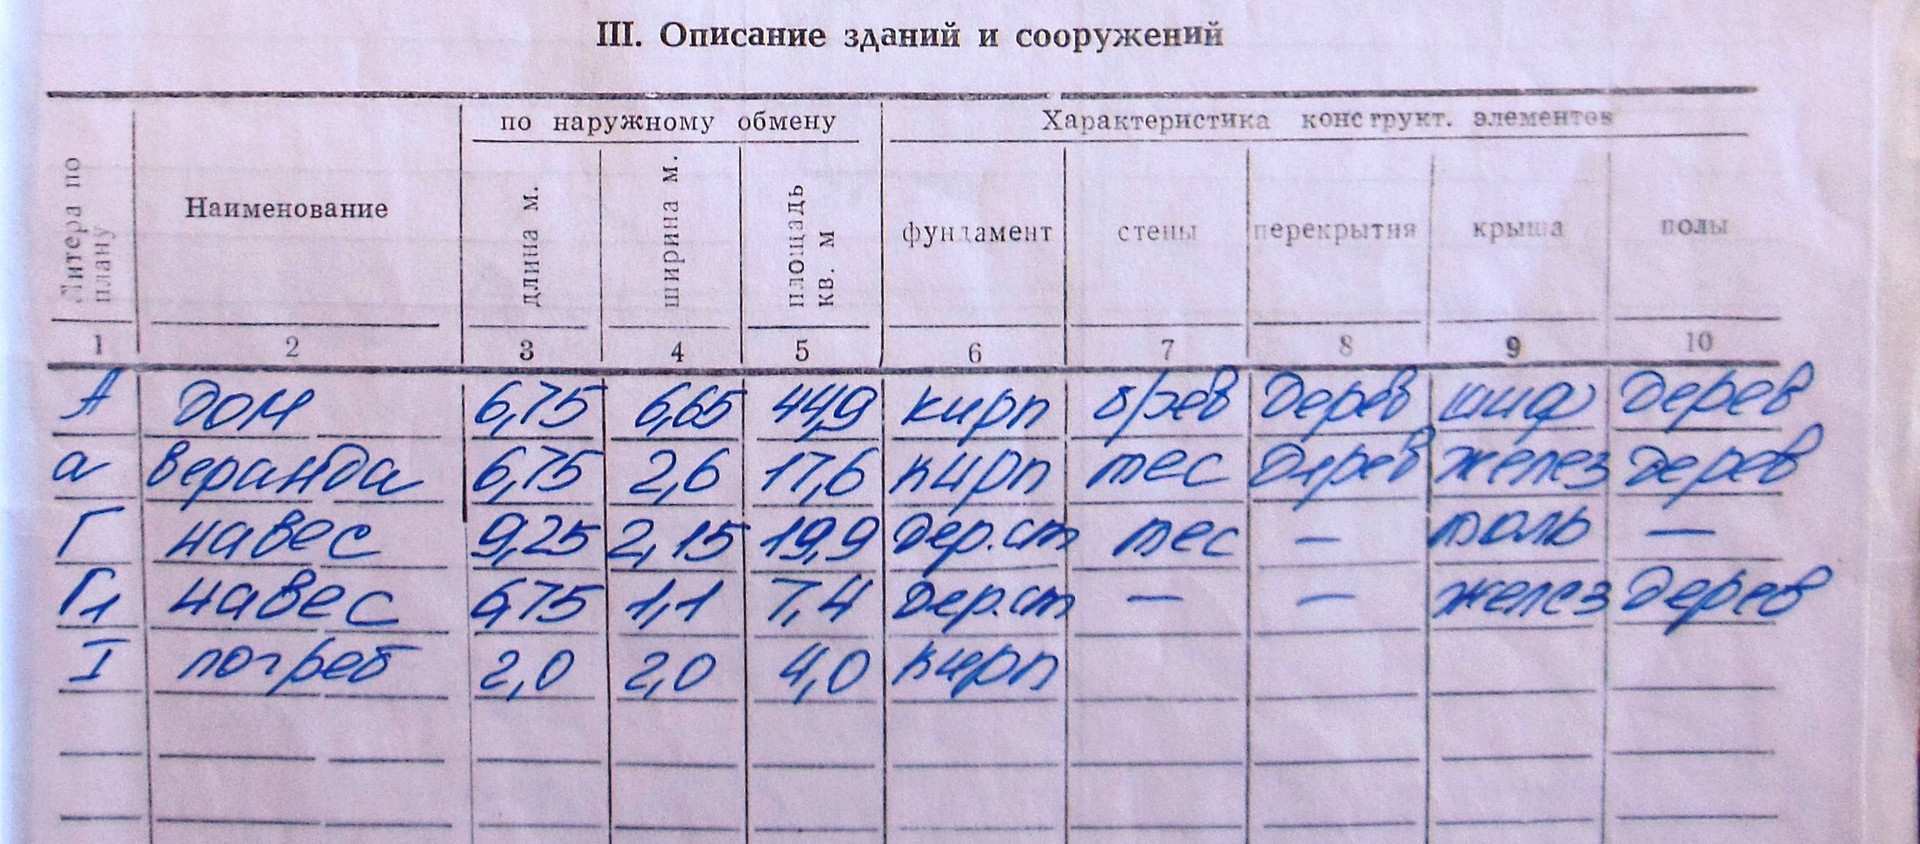 III. Описание зданий и сооружений
по наружному обмену Характеристика конструкт. элементов
Литера по плану Наименование длина м. ширина м. площадь кв. м фундамент стены перекрытия крыша полы
1 2 3 4 5 6 7 8 9 10
А дом 6,75 6,65 44,9 кирп брев дерев шиф дерев
а веранда 6,75 2,6 17,6 кирп тес дерев желез дерев
Г навес 9,25 2,15 19,9 дер.ст тес — толь —
Г1 навес 6,75 1,1 7,4 дер.ст — — желез дерев
I погреб 2,0 2,0 4,0 кирп